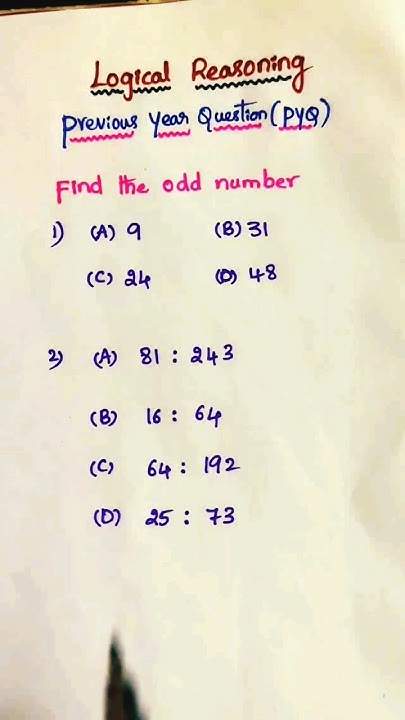 Logical Reasoning
Previous Year Question (PYQ)
Find the odd number
1) (A) 9 (B) 31
(C) 24 (D) 48
2) (A) 81 : 243
(B) 16 : 64
(C) 64 : 192
(D) 25 : 73